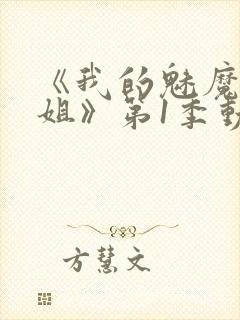 《我的魅魔
姐》第1季動
方慧文